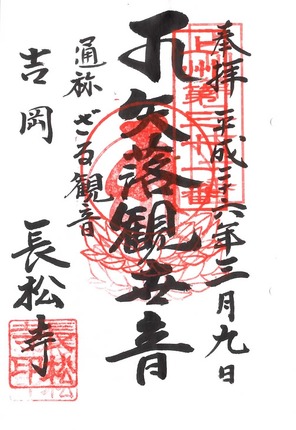 奉拝 平成二十六年三月九日
上州第三十二番
矢落観世音
通称 ざる観音
吉岡 長松寺
長松寺印